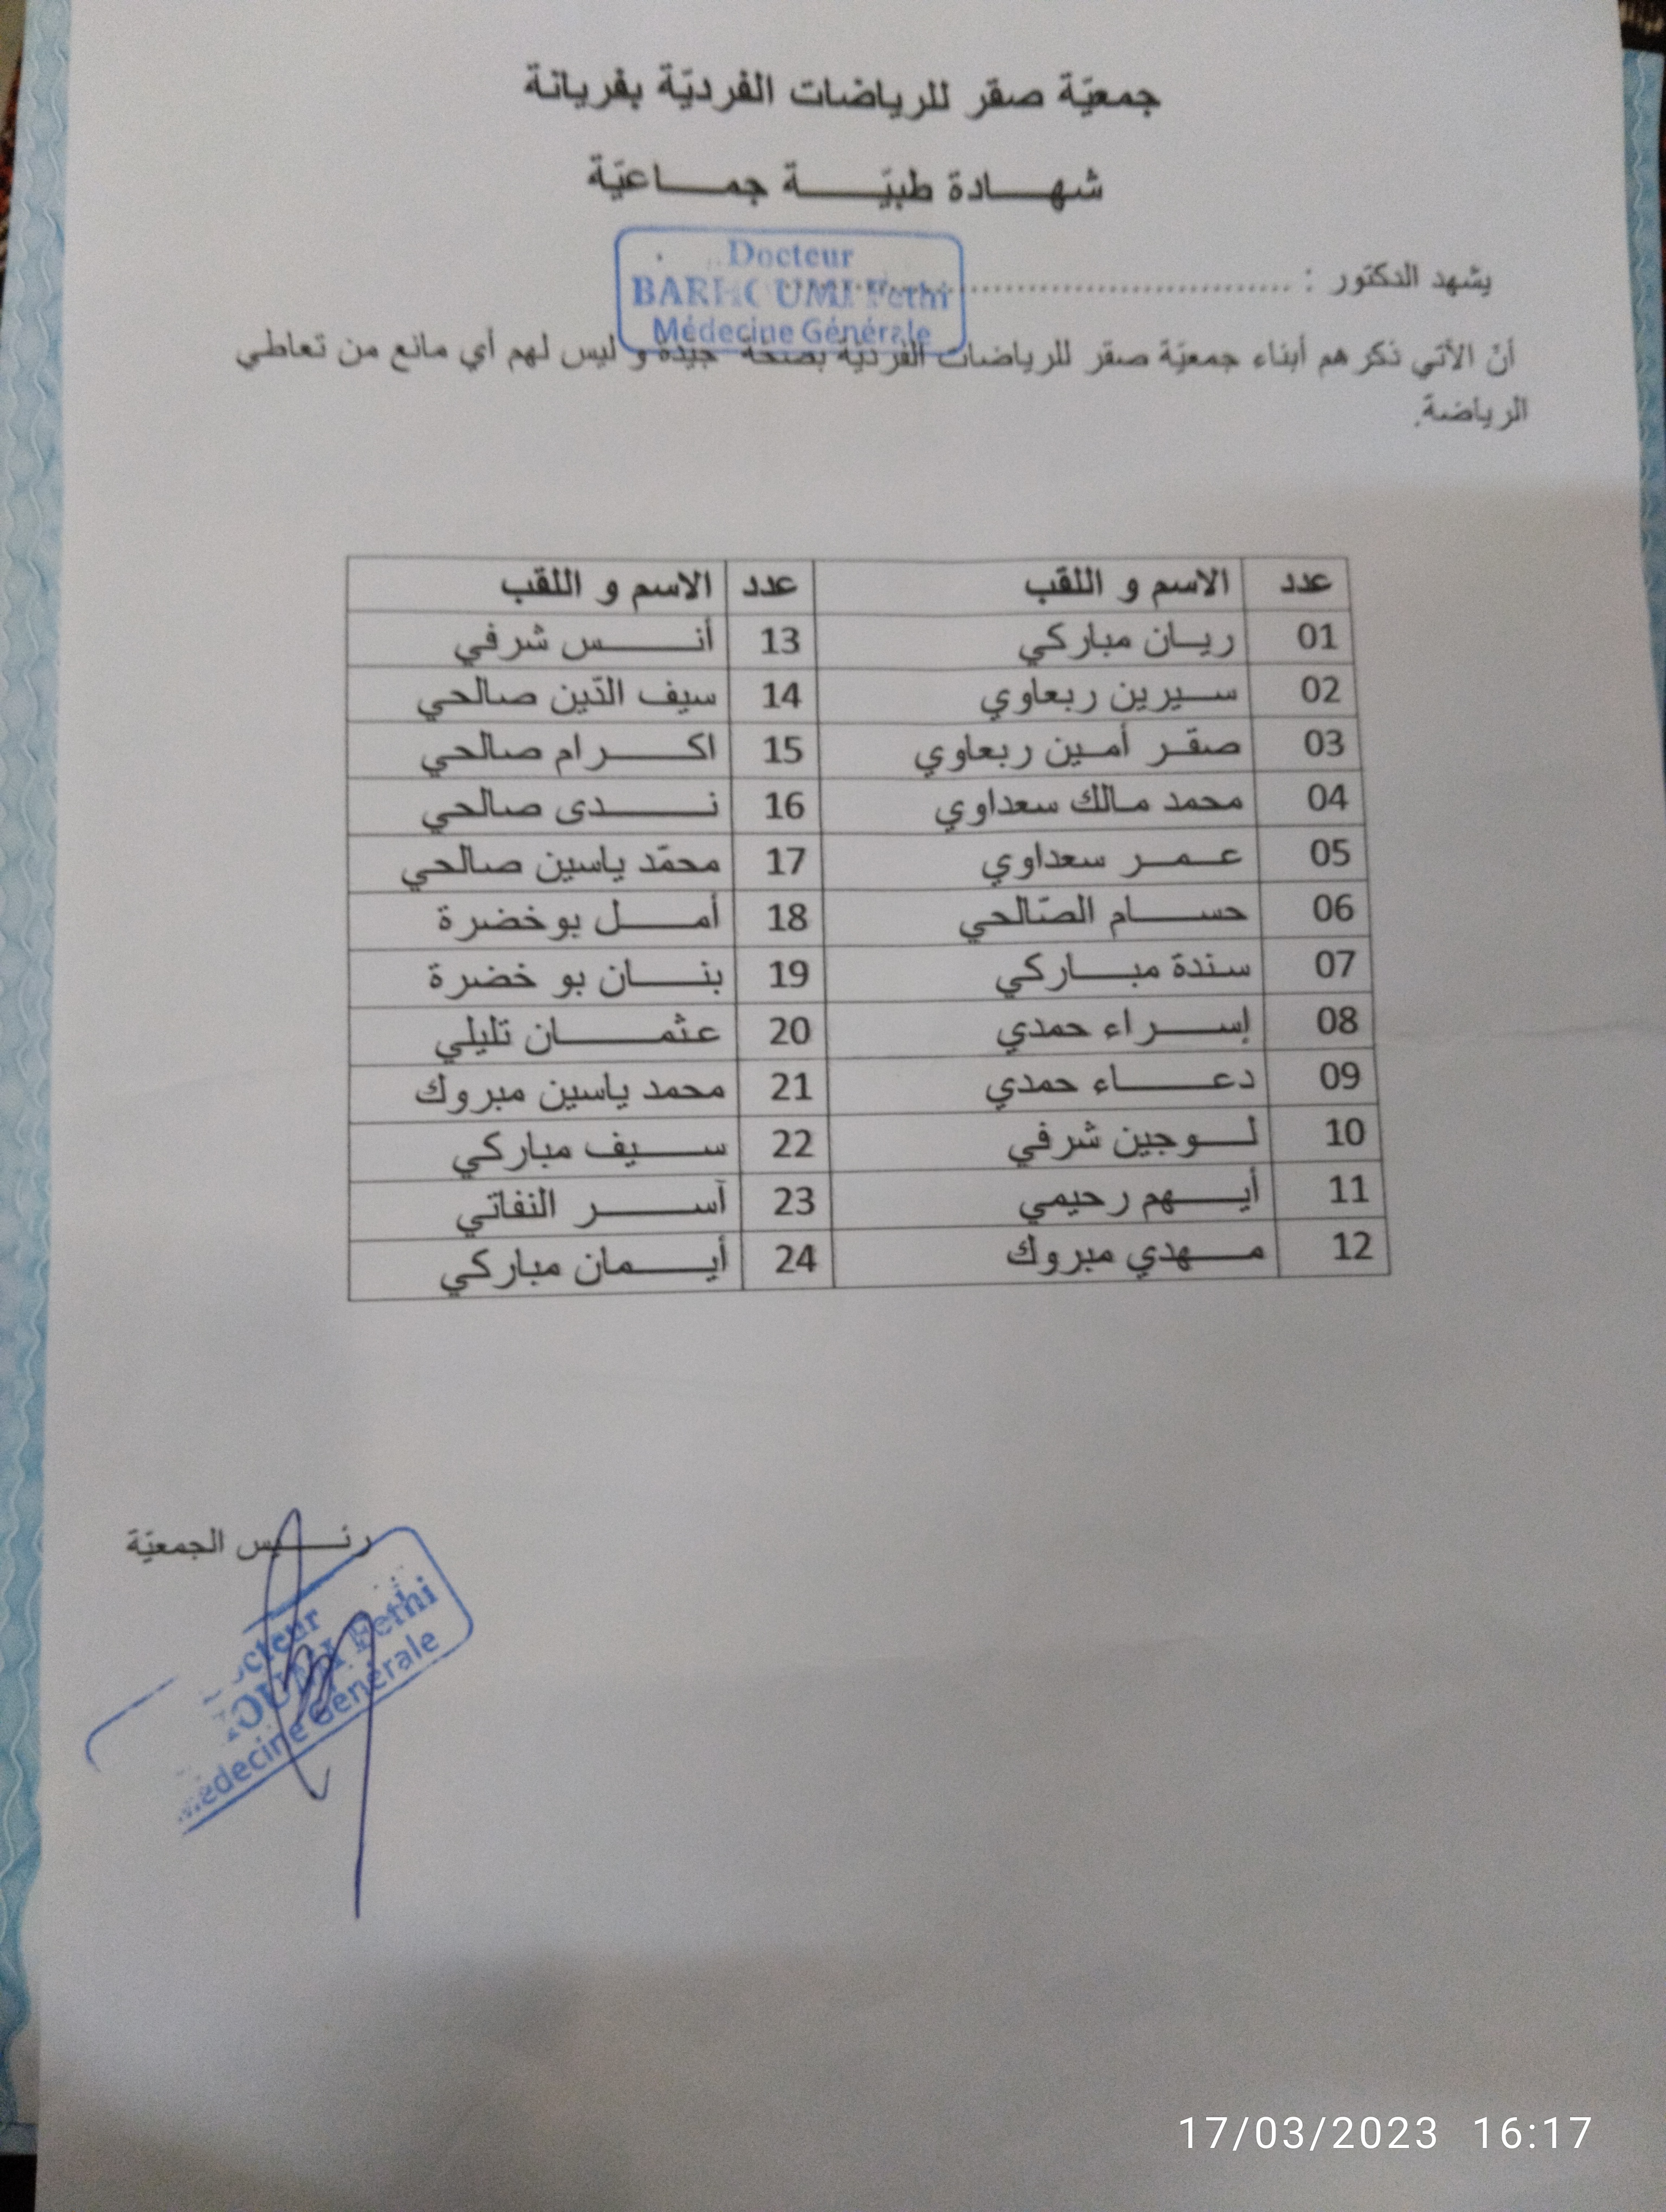 جمعيّة صقر للرياضات الفرديّة بفريانة
شهـــادة طبيّـــــة جمـــاعيّة
يشهد الدكتور : ......................................
Docteur
BARHOUMI Fethi
Médecine Générale
أنّ الآتي ذكرهم أبناء جمعيّة صقر للرياضات الفرديّة بصحّة جيّدة و ليس لهم أي مانع من تعاطي
الرياضة.
عدد الاسم و اللقب عدد الاسم و اللقب
01 ريـــان مباركي 13 أنـــــــس شرفي
02 ســـيرين ربعاوي 14 سيف الدّين صالحي
03 صقـــر أمـــين ربعاوي 15 اكـــــــرام صالحي
04 محمد مـالك سعداوي 16 نـــــــدى صالحي
05 عـــمـــر سعداوي 17 محمّد ياسين صالحي
06 حســـــام الصّالحي 18 أمـــــل بوخضرة
07 سندة مبـــــاركي 19 بنـــــان بو خضرة
08 إســـــراء حمدي 20 عثمـــــــان تليلي
09 دعـــــــاء حمدي 21 محمد ياسين مبروك
10 لـــــوجين شرفي 22 ســـــيف مباركي
11 أيـــــهم رحيمي 23 آســـــــر النفاتي
12 مـــــهدي مبروك 24 أيـــــمان مباركي
رئـــــيس الجمعيّة
Fethi
Médecine Générale
17/03/2023 16:17